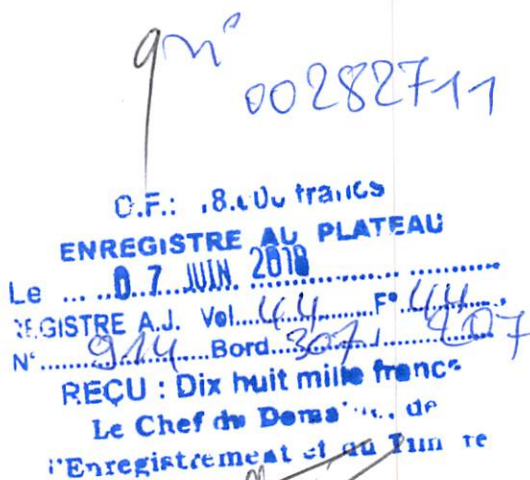 n° 00282711
D.F.: 18.000 francs
ENREGISTRE AU PLATEAU
Le ... 07 JUIN. 2018 ...
REGISTRE A.J. Vol. 44 F° 44
N° 914 Bord. 307 / 207
REÇU : Dix huit mille francs
Le Chef du Domaine, de
l'Enregistrement et du Timbre